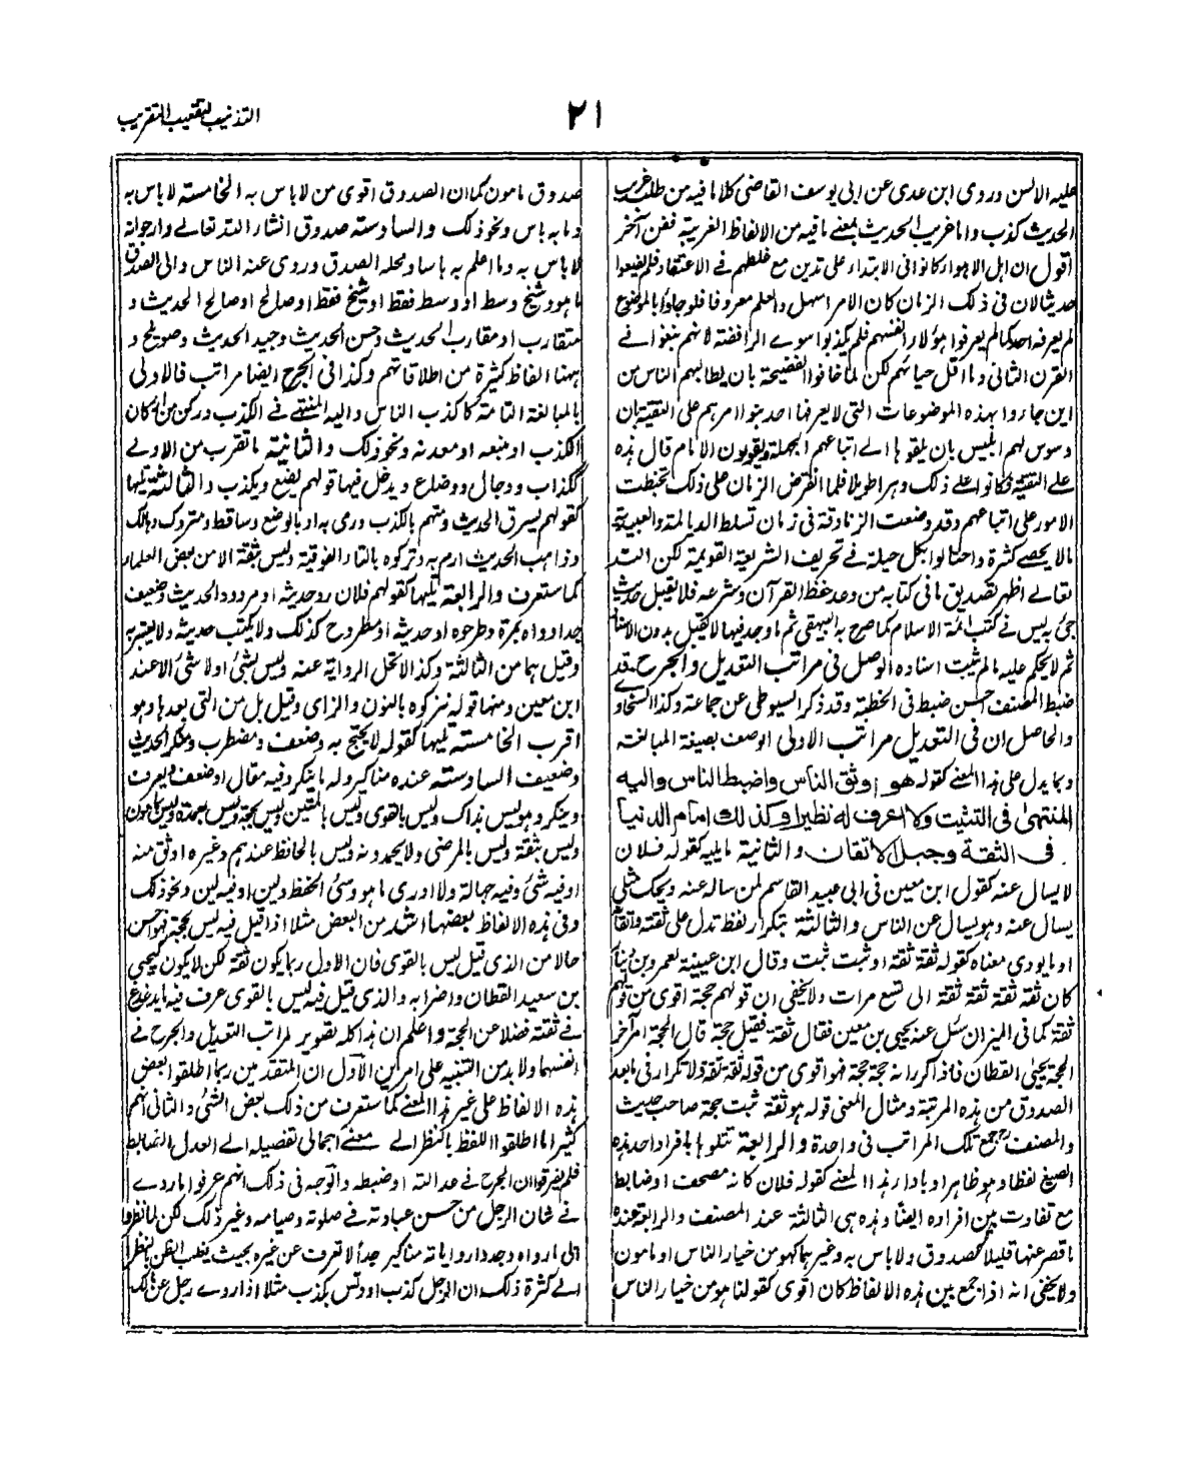 التذنيب لتعقيب التقريب
٢١
عليه الالسن وروى ابن عدى عن ابى يوسف القاضى كلاما فيه من طلب غريب
الحديث كذب واما غريب الحديث بمعنے ما فيه من الالفاظ الغريبة ففن آخر
اقول ان اهل الاهواء كانوا فى الابتداء على تدين مع غلطهم فى الاعتقاد فلم يضعوا
حديثا لان فى ذلك الزمان كان الامر اسهل والعلم معروفا فلو جاؤا بالموضوع
لم يعرفه احد كما لم يعرفوا هؤلاء انفسهم فلم يكذبوا سوے الرافضة لانهم نبغوا نے
القرن الثانى وما اقل حيائهم لكن لما خافوا الفضيحة بان يطالبهم الناس من
اين جاءوا بهذه الموضوعات التى لا يعرفها احد بنوا امرهم على التقية بان
وسوس لهم ابليس بان يلقوها الے اتباعهم الجهلة ويقولون الامام قال هذه
على التقية فكانوا علے ذلك دهرا طويلا فلما انقرض الزمان على ذلك تخبطت
الامور على اتباعهم وقد وضعت الزنادقة فى زمان تسلط الديالمة والعبيدية
ما لا يحصے كثرة واحتالوا بكل حيلة فے تحريف الشريعة القويمة لكن الله
تعالے اظهر تصديق ما فى كتابه من وعد حفظ القرآن وشرعه فلا يقبل حديث
جئ به ليس فے كتب ائمة الاسلام كما صرح به البيهقى ثم ما وجد فيها لا يقبل بدون الاسناد
ثم لا يحكم عليه ما لم يثبت اسناده الوصل فى مراتب التعديل والجرح قد
ضبط المصنف احسن ضبط فى الخطبة وقد ذكر السيوطى عن جماعة وكذا السخاوے
والحاصل ان فى التعديل مراتب الاولى الوصف بصيغة المبالغة
وبما يدل على هذا المعنے كقوله هو اوثق الناس واضبط الناس واليه
المنتهى فى التثبت ولا اعرف له نظيرا وكذلك امام الدنيا
فى الثقة وجبل الاتقان والثانية ما يليه كقوله فلان
لا يسال عنه كقول ابن معين فى ابى عبيد القاسم لمن ساله عنه ويحك مثلى
يسال عنه وهو يسال عن الناس والثالثة بتكرار لفظ تدل على ثقته واتقانه
او ما يودى معناه كقوله ثقة ثقة او ثبت ثبت وقال ابن عيينة لعمرو بن دينار
كان ثقة ثقة ثقة ثقة الى تسع مرات ولا يخفى ان قولهم حجة اقوى من قولهم
ثقة كما فى الميزان سئل عنه يحيى بن معين فقال ثقة فقيل حجة قال الحجة امر آخر
الحجة يحيى القطان فاذا كرر انه حجة حجة فهو اقوى من قوله ثقة ثقة ولا تكرار فى ما بعد
الصدوق من هذه المرتبة ومثال المعنى قوله هو ثقة ثبت حجة صاحب حديث
والمصنف جمع تلك المراتب فى واحدة والرابعة تتلوها بافراد احد هذه
الصيغ لفظا وهو ظاهر او باداء هذا المعنے كقوله فلان كانه مصحف او ضابط
مع تفاوت بين افراده ايضا وهذه هى الثالثة عند المصنف والرابعة عنده
ما قصر عنها قليلا كصدوق ولا باس به وغيرهما كهو من خيار الناس او مامون
ولا يخفى انه اذا جمع بين هذه الالفاظ كان اقوى كقولنا هو من خيار الناس
صدوق مامون كما ان الصدوق اقوى من لا باس به الخامسة لا باس به
وما به باس ونحو ذلك والسادسة صدوق انشاء الله تعالے وارجو انه
لا باس به وما اعلم به باسا ومحله الصدق وروى عنه الناس والى الصدق
ما هو وشيخ وسط او وسط فقط او شيخ فقط او صالح او صالح الحديث و
متقارب او مقارب الحديث وحسن الحديث وجيد الحديث وصويلح و
ههنا الفاظ كثيرة من اطلاقاتهم وكذا فى الجرح ايضا مراتب فالاولى
بالمبالغة التامة كاكذب الناس واليه المنتهے فے الكذب وركن من اركان
الكذب او منبعه او معدنه ونحو ذلك والثانية ما تقرب من الاولے
ككذاب ودجال ووضاع ويدخل فيها قولهم يضع ويكذب والثالثة تليها
كقولهم يسرق الحديث ومتهم بالكذب ورمى به او بالوضع وساقط ومتروك وهالك
وذاهب الحديث ارم به وتركوه بالتاء الفوقية وليس بثقة الا من بعض العلماء
كما ستعرف والرابعة تليها كقولهم فلان رد حديثه او مردود الحديث وضعيف
جدا وواه بمرة وطرحوه او حديثه او مطروح كذلك ولا يكتب حديثه ولا يعتبر به
وقيل هما من الثالثة وكذا لا تحل الرواية عنه وليس بشئ او لا شئ الا عند
ابن معين ومنها قوله نزكوه بالنون والزاى وقيل بل من التى بعدها وهو
اقرب الخامسة تليها كقوله لا يحتج به وضعف ومضطرب ومنكر الحديث
وضعيف السادسة عنده مناكير وله ما ينكر وفيه مقال او ضعف ويعرف
وينكر وهو ليس بذاك وليس بالقوى وليس بالمتين وليس بحجة وليس بعمدة وليس بمامون
وليس بثقة وليس بالمرضى ولا يحمدونه وليس بالحافظ عندهم وغيره اوثق منه
او فيه شئ وفيه جهالة ولا ادرى ما هو وسئ الحفظ ولين او فيه لين ونحو ذلك
وفى هذه الالفاظ بعضها اشد من البعض مثلا اذا قيل فيه ليس بحجة فهو احسن
حالا من الذى قيل ليس بالقوى فان الاول ربما يكون ثقة لكن لا يكون كيحيى
بن سعيد القطان واضرابه والذى قيل فيه ليس بالقوى عرف فيه ما يدغدغ
فے ثقته فضلا عن الحجة واعلم ان هذا كله تقوير لمراتب التعديل والجرح فے
انفسها ولا بد من التنبيه على امرين الآول ان المتقدمين ربما اطلقوا البعض
هذه الالفاظ على غير هذا المعنے كما ستعرف من ذلك بعض الشئ والثانى انهم
كثيرا ما اطلقوا اللفظ بالنظر الے معنے اجمالى تفصيله الے العدل والضابط
فلم يفرقوا ان الجرح فے عدالته او ضبطه والوجه فى ذلك انهم عرفوا ما ردے
فے شان الرجل من حسن عبادته فے صلوته وصيامه وغير ذلك لكن لما نظروا
الى ما رواه وجد دار واياته مناكير جدا لا تعرف عن غيره بحيث يغلب الظن بالنظر
الے كثرة ذلك ان الرجل كذب او دلس بكذب مثلا اذا روے رجل عن مالك